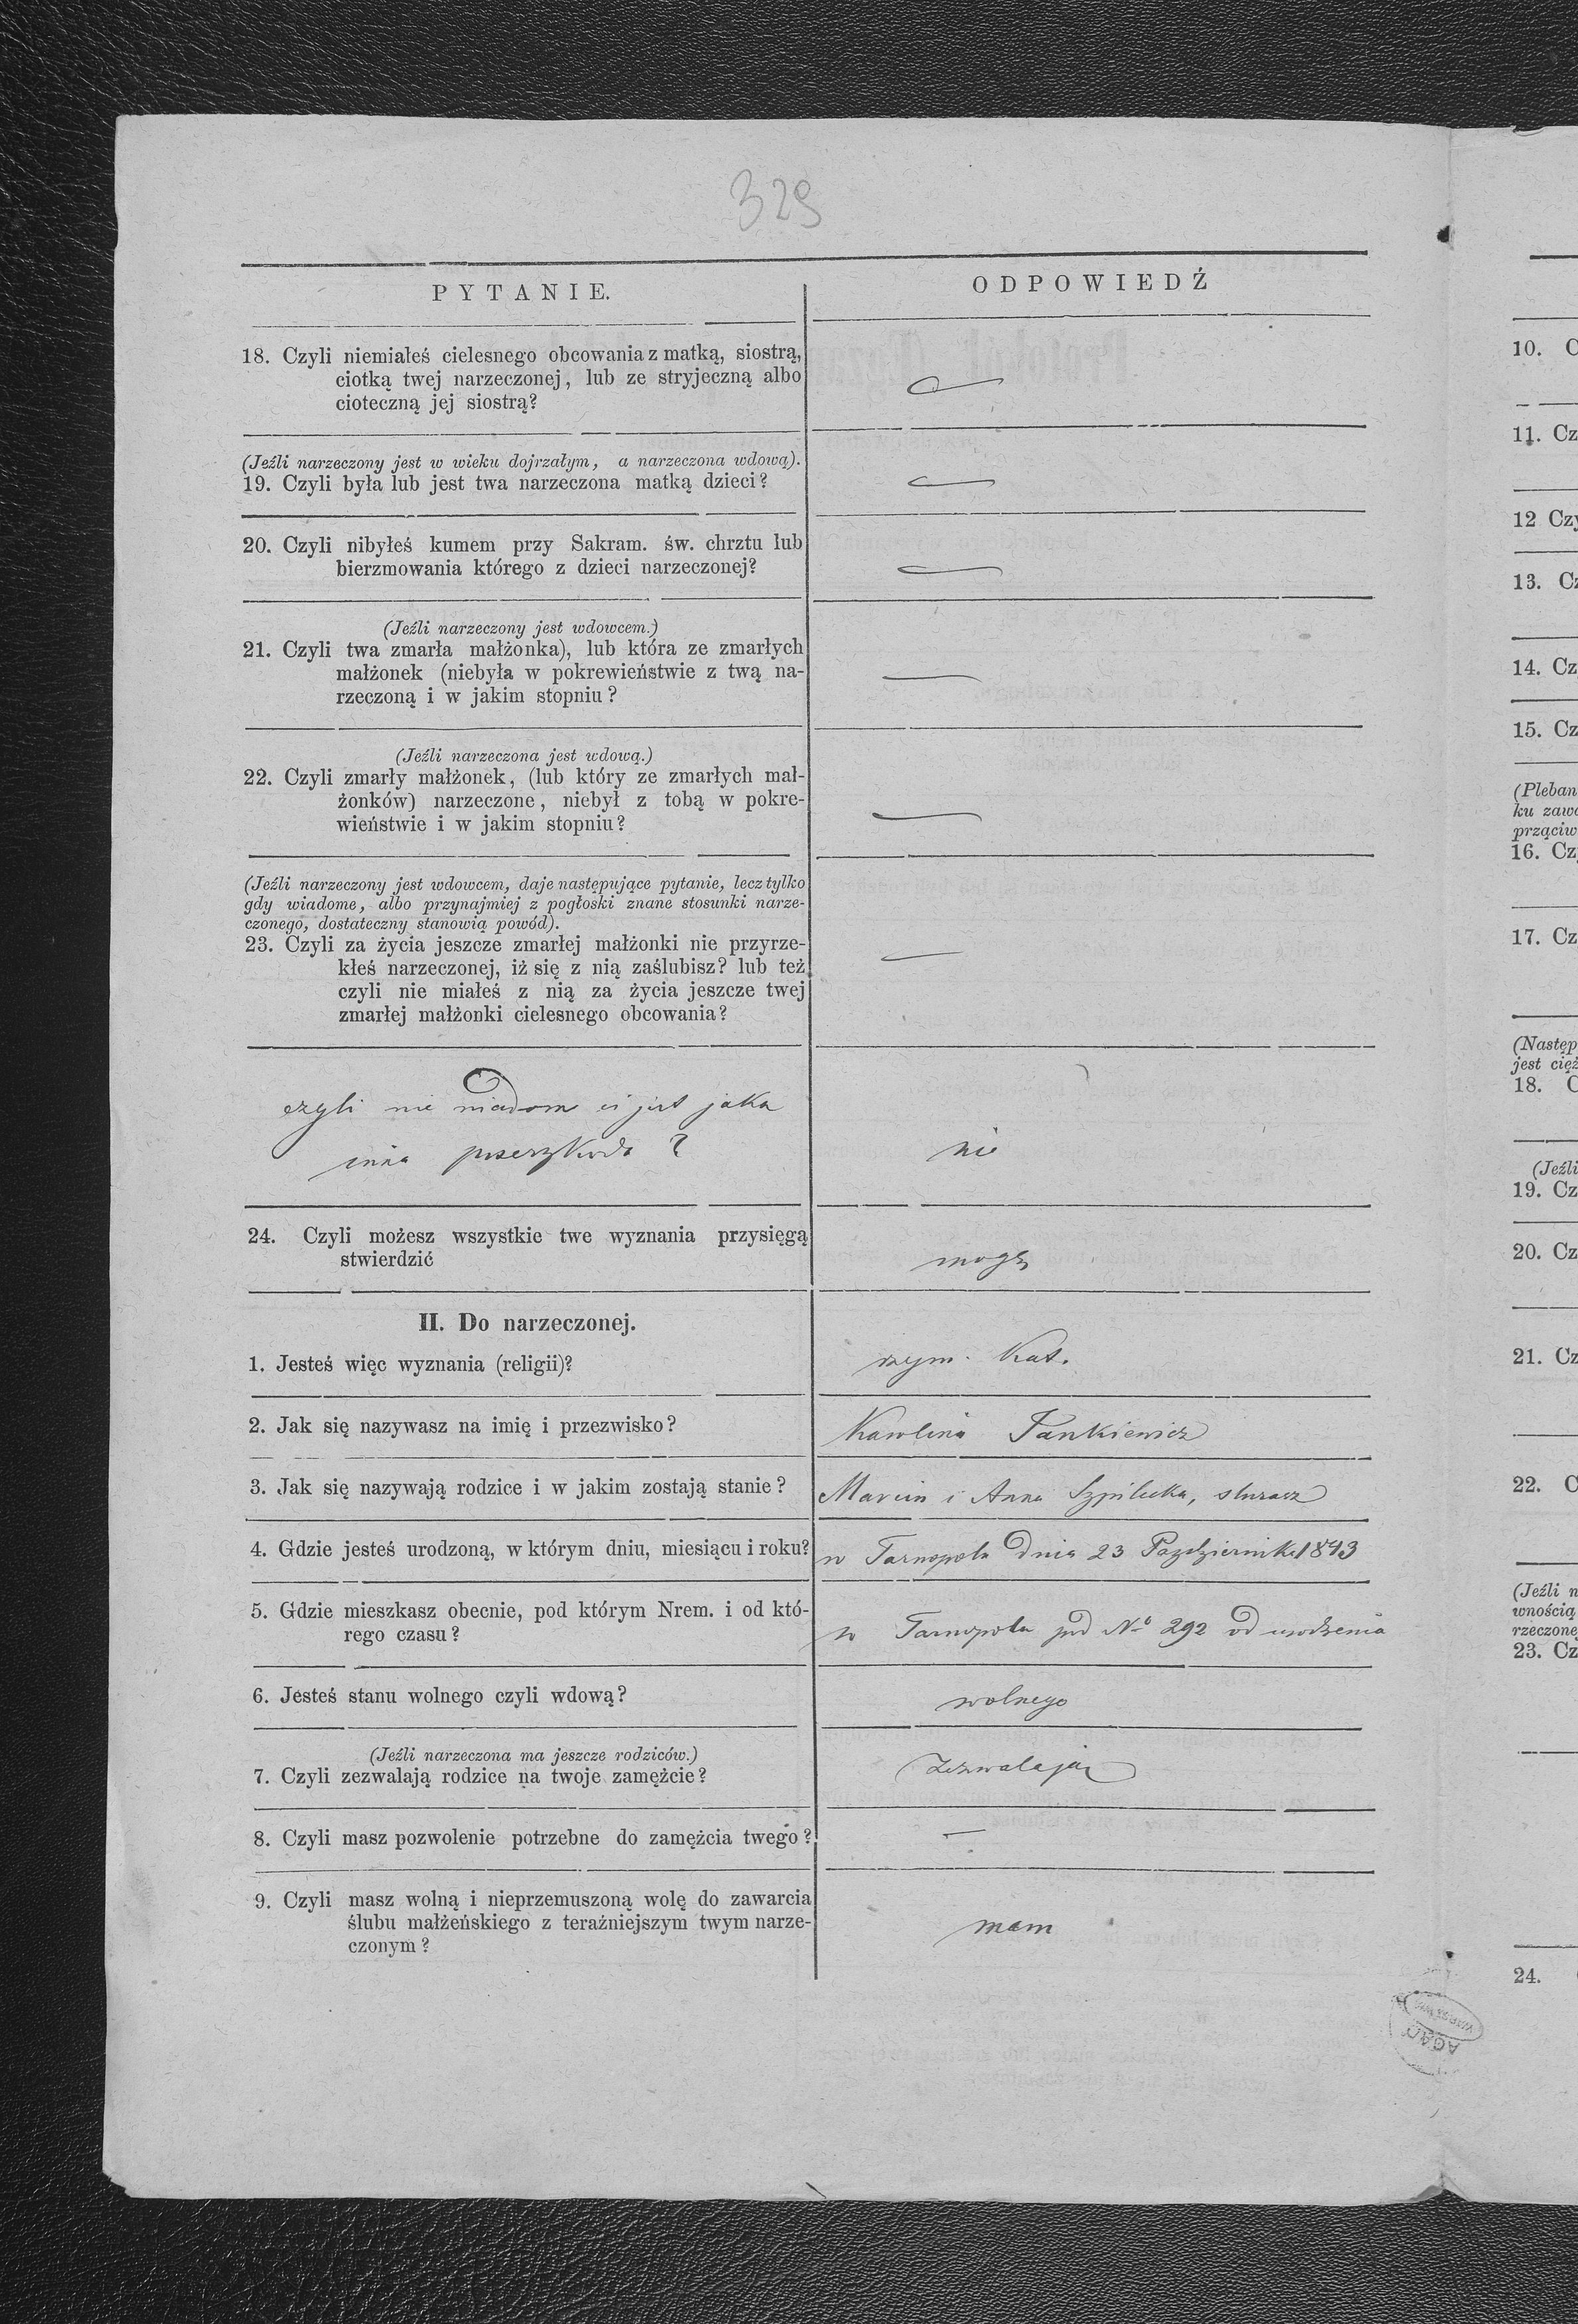 329
PYTANIE.
ODPOWIEDŹ
18. Czyli niemiałeś cielesnego obcowania z matką, siostrą,
ciotką twej narzeczonej, lub ze stryjeczną albo
cioteczną jej siostrą?
(Jeźli narzeczony jest w wieku dojrzałym, a narzeczona wdową).
19. Czyli była lub jest twa narzeczona matką dzieci?
20. Czyli nibyłeś kumem przy Sakram. św. chrztu lub
bierzmowania którego z dzieci narzeczonej?
(Jeźli narzeczony jest wdowcem.)
21. Czyli twa zmarła małżonka), lub która ze zmarłych
małżonek (niebyła w pokrewieństwie z twą na-
rzeczoną i w jakim stopniu?
(Jeźli narzeczona jest wdową.)
22. Czyli zmarły małżonek, (lub który ze zmarłych mał-
żonków) narzeczone, niebył z tobą w pokre-
wieństwie i w jakim stopniu?
(Jeźli narzeczony jest wdowcem, daje następujące pytanie, lecz tylko
gdy wiadome, albo przynajmiej z pogłoski znane stosunki narze-
czonego, dostateczny stanowią powód).
23. Czyli za życia jeszcze zmarłej małżonki nie przyrze-
kłeś narzeczonej, iż się z nią zaślubisz? lub też
czyli nie miałeś z nią za życia jeszcze twej
zmarłej małżonki cielesnego obcowania?
czyli nie wiadom ci jest jaka
inna przeszkoda?
nie
24. Czyli możesz wszystkie twe wyznania przysięgą
stwierdzić
mogę
II. Do narzeczonej.
1. Jesteś więc wyznania (religii)?
rzym. Kat.
2. Jak się nazywasz na imię i przezwisko?
Karolina Jankiewicz
3. Jak się nazywają rodzice i w jakim zostają stanie?
Marcin i Anna Szpilecka,
4. Gdzie jesteś urodzoną, w którym dniu, miesiącu i roku?
w Tarnopolu dnia 23 Października 1843
5. Gdzie mieszkasz obecnie, pod którym Nrem. i od któ-
rego czasu?
w Tarnopolu pod No 292 od urodzenia
6. Jesteś stanu wolnego czyli wdową?
wolnego
(Jeźli narzeczona ma jeszcze rodziców.)
7. Czyli zezwalają rodzice na twoje zamężcie?
zezwalają
8. Czyli masz pozwolenie potrzebne do zamężcia twego?
9. Czyli masz wolną i nieprzemuszoną wolę do zawarcia
ślubu małżeńskiego z teraźniejszym twym narze-
czonym?
mam
10. C
11. Cz
12 Czy
13. Cz
14. Cz
15. Cz
(Pleban
ku zawa
prząciw
16. Cz
17. Cz
(Następ
jest cięż
18. C
(Jeźli
19. Cz
20. Cz
21. Cz
22. C
(Jeźli n
wnością
rzeczone
23. Cz
24.
AGAD